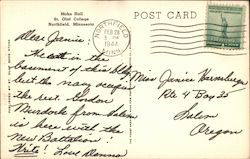 Mohn Hall
St. Olaf College
Northfield, Minnesota
POST CARD
NORTHFIELD
FEB 28
1944
MINN.
Dear Janice:
We eat in the
basement of this bldg
but the navy occupies
the rest. Gordon
Murdock from Salem
is here with the
new Battalion!
Write! Love Donna
Miss Janice
Rte 4 Box 25
Salem
Oregon